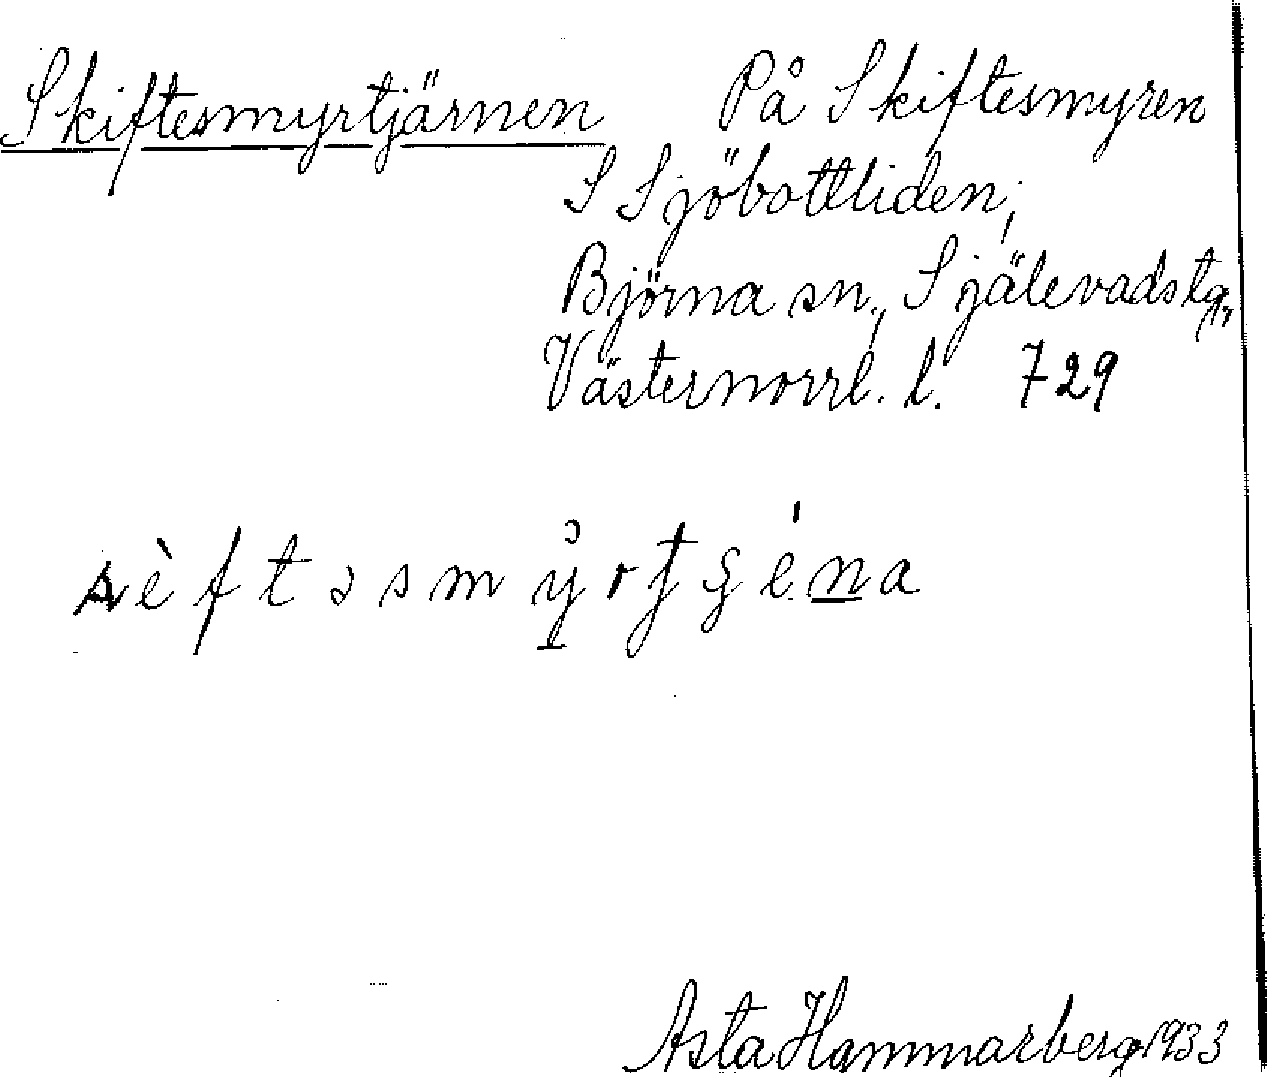 Skiftesmyrtjärnen På Skiftesmyren
S Sjöbottliden,
Björna sn, Själevads tg,
Västernorrl. l. 729
Asta Hammarberg 1933